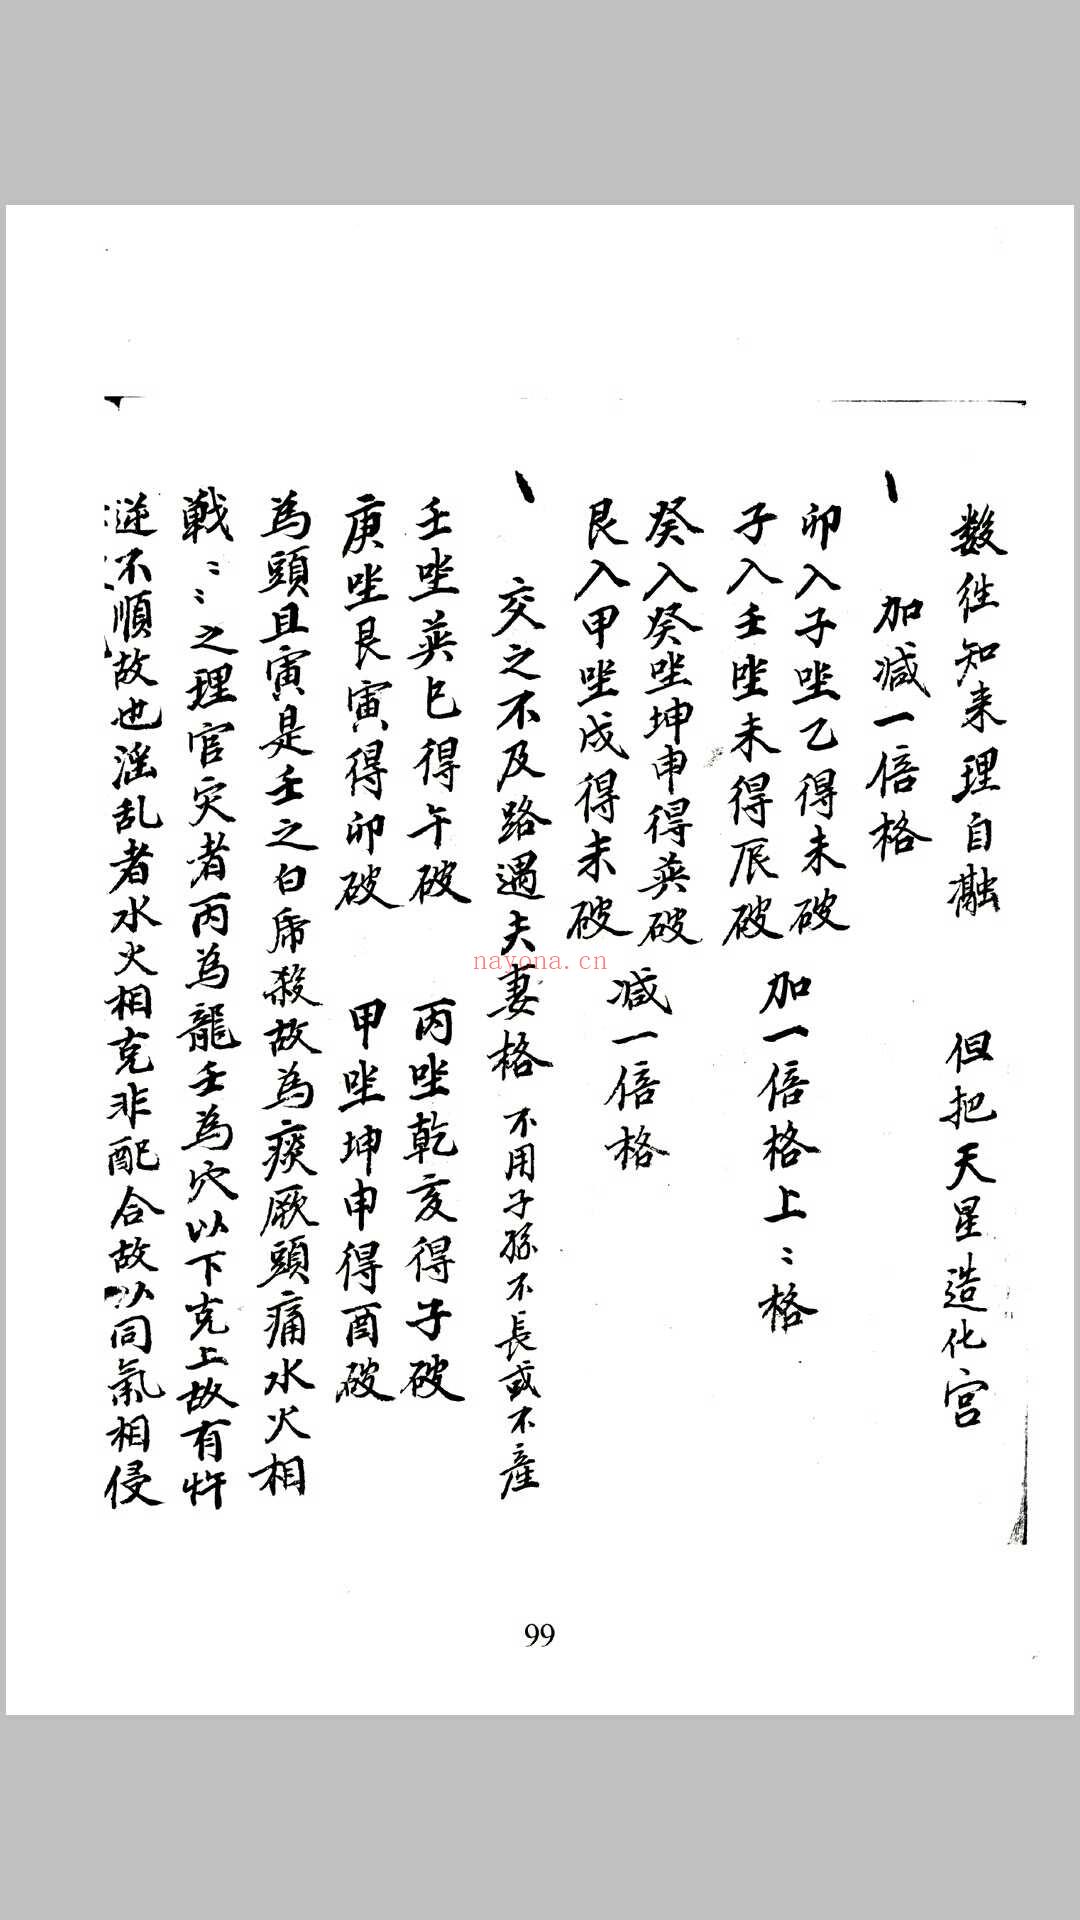 数往知来理自融 但把天星造化宫
加减一倍格
卯入子坐乙得未破
子入壬坐未得辰破
加一倍格上〻格
癸入癸坐坤申得巽破
艮入甲坐戌得未破
减一倍格
交之不及路遇夫妻格 不用子孫不長或不産
壬坐巽巳得午破 丙坐乾亥得子破
庚坐艮寅得卯破 甲坐坤申得酉破
為頭且寅是壬之白虎殺故為痰厥頭痛水火相
戦〻〻之理官灾者丙為龍壬為穴以下克上故有忤
逆不順故也淫乱者水火相克非配合故以同氣相侵
nayona.cn
99